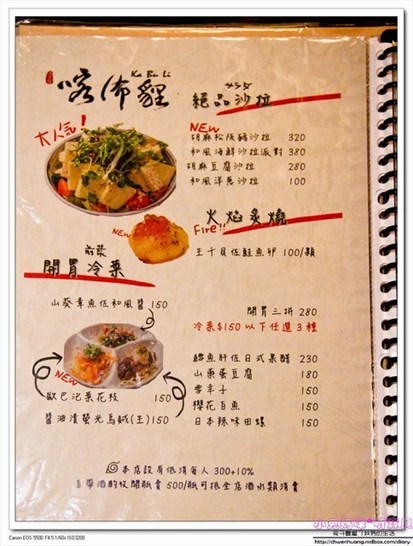 Ka Bu Li
喀佈貍
絕品沙拉
サラダ
大人氣!
NEW
胡麻松阪豬沙拉 320
和風海鮮沙拉派對 380
胡麻豆腐沙拉 280
和風洋蔥沙拉 100
火焰炙燒
Fire!!
NEW
生干貝佐鮭魚卵 100/顆
前菜
開胃冷菜
山葵章魚佐和風醬 150
開胃三拼 280
冷菜$150以下任選3種
NEW
鱈魚肝佐日式果醋 230
山藥蛋豆腐 180
雪幸子 150
歐巴泡菜花枝 150
櫻花白魚 150
醬油漬螢光烏賊(生) 150
日本辣味田螺 150
本店設有低消每人 300+10%
自帶酒酌收開瓶費 500/瓶可抵全店酒水類消費
Canon EOS 550D F4.5 1/60s ISO3200
http://chwenhuang.nidbox.com/diary